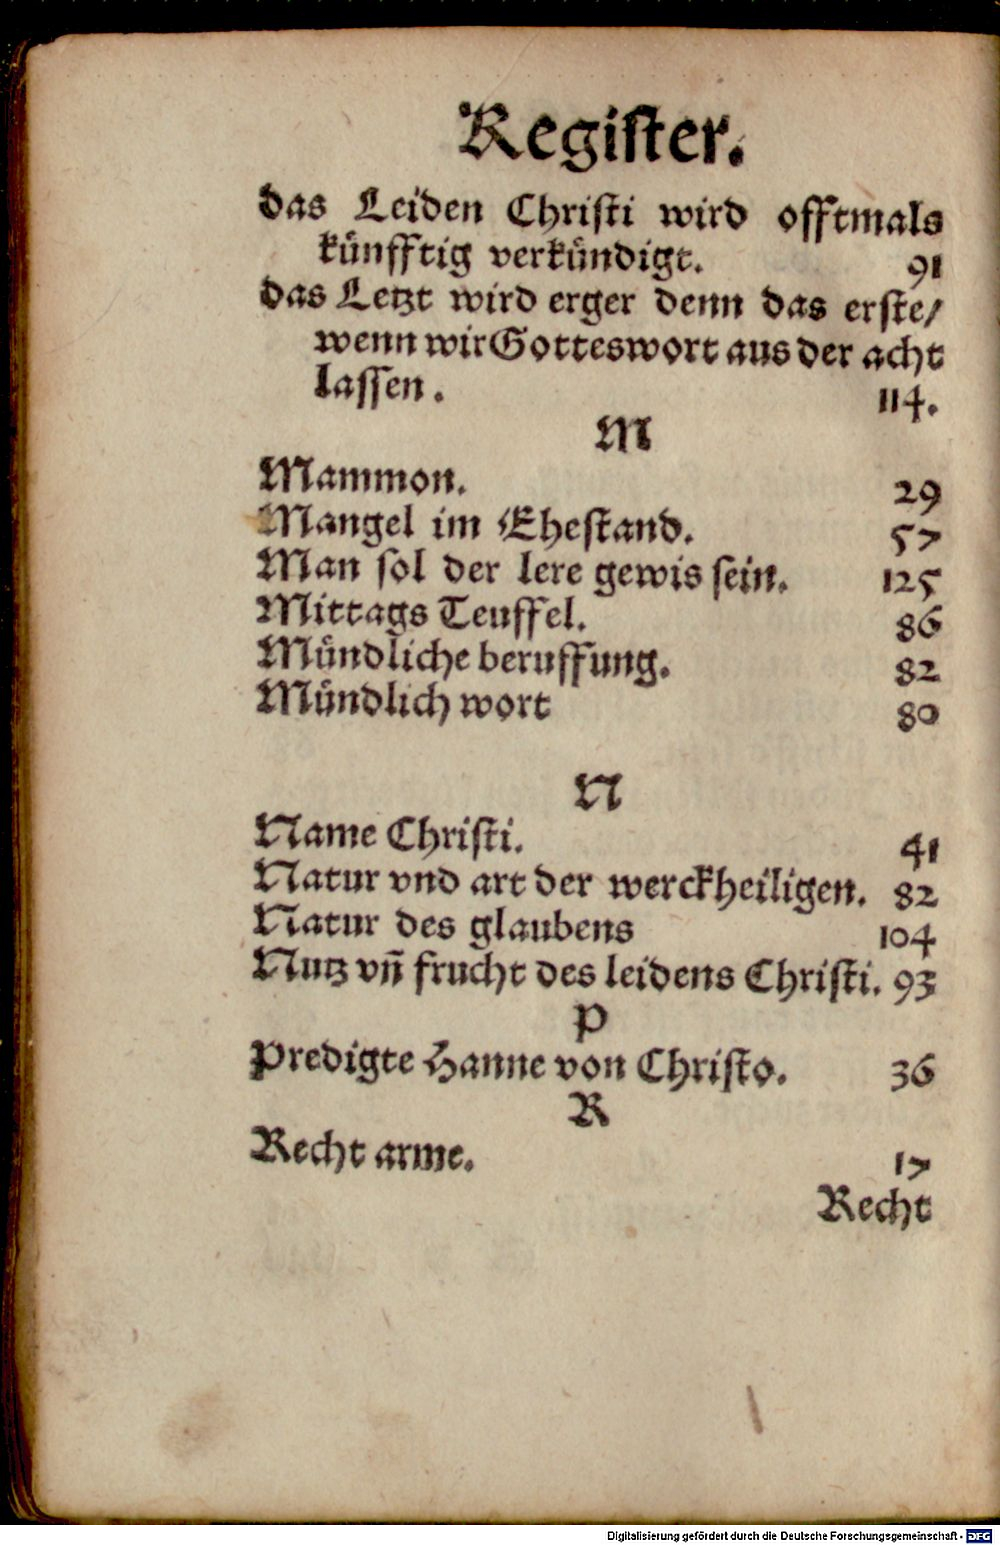 Register.
das Leiden Christi wird offtmals
künfftig verkündigt. 91
das Letzt wird erger denn das erste/
wenn wir Gottes wort aus der acht
lassen. 114.
M
Mammon. 29
Mangel im Ehestand. 57
Man sol der lere gewis sein. 125
Mittags Teuffel. 86
Mündliche beruffung. 82
Mündlich wort 80
N
Name Christi. 41
Natur vnd art der werckheiligen. 82
Natur des glaubens 104
Nutz vn̄ frucht des leidens Christi. 93
P
Predigte Hanne von Christo. 36
R
Recht arme. 17
Recht
Digitalisierung gefördert durch die Deutsche Forschungsgemeinschaft - DFG